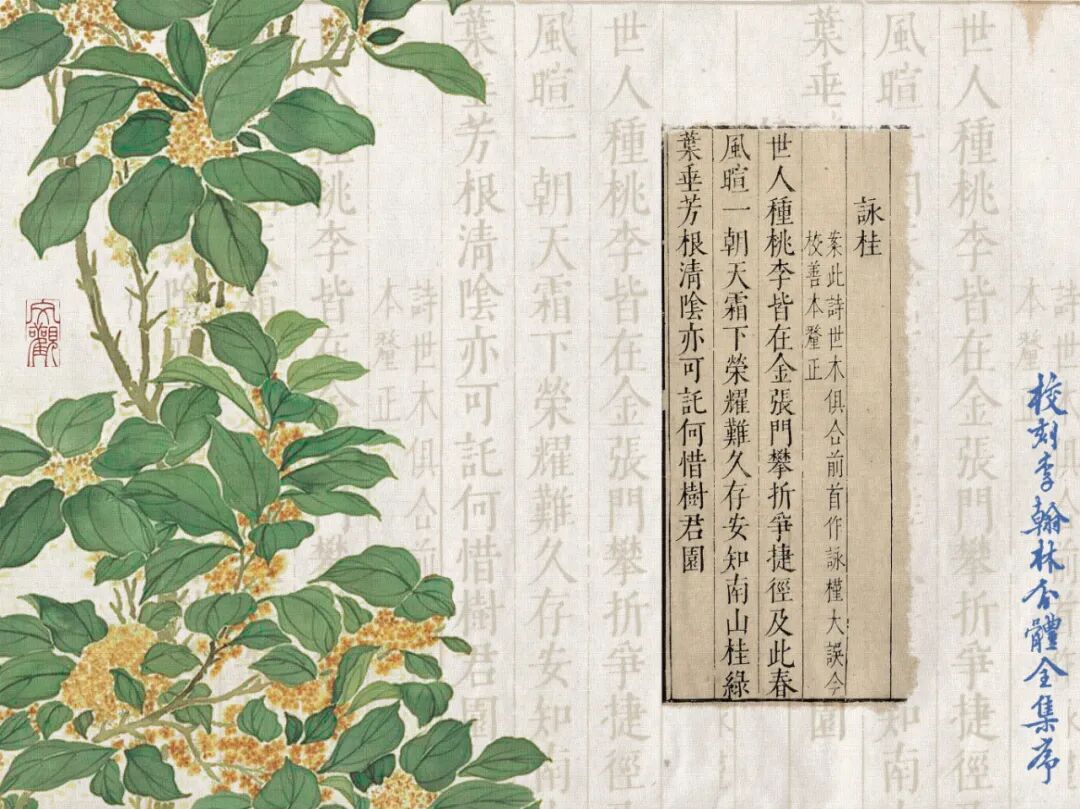 詠桂
案此詩世本俱合前首作詠槿大誤今
校善本釐正
世人種桃李皆在金張門攀折爭捷徑及此春
風暄一朝天霜下榮耀難久存安知南山桂綠
葉垂芳根清陰亦可託何惜樹君園
校刻李翰林分體全集序